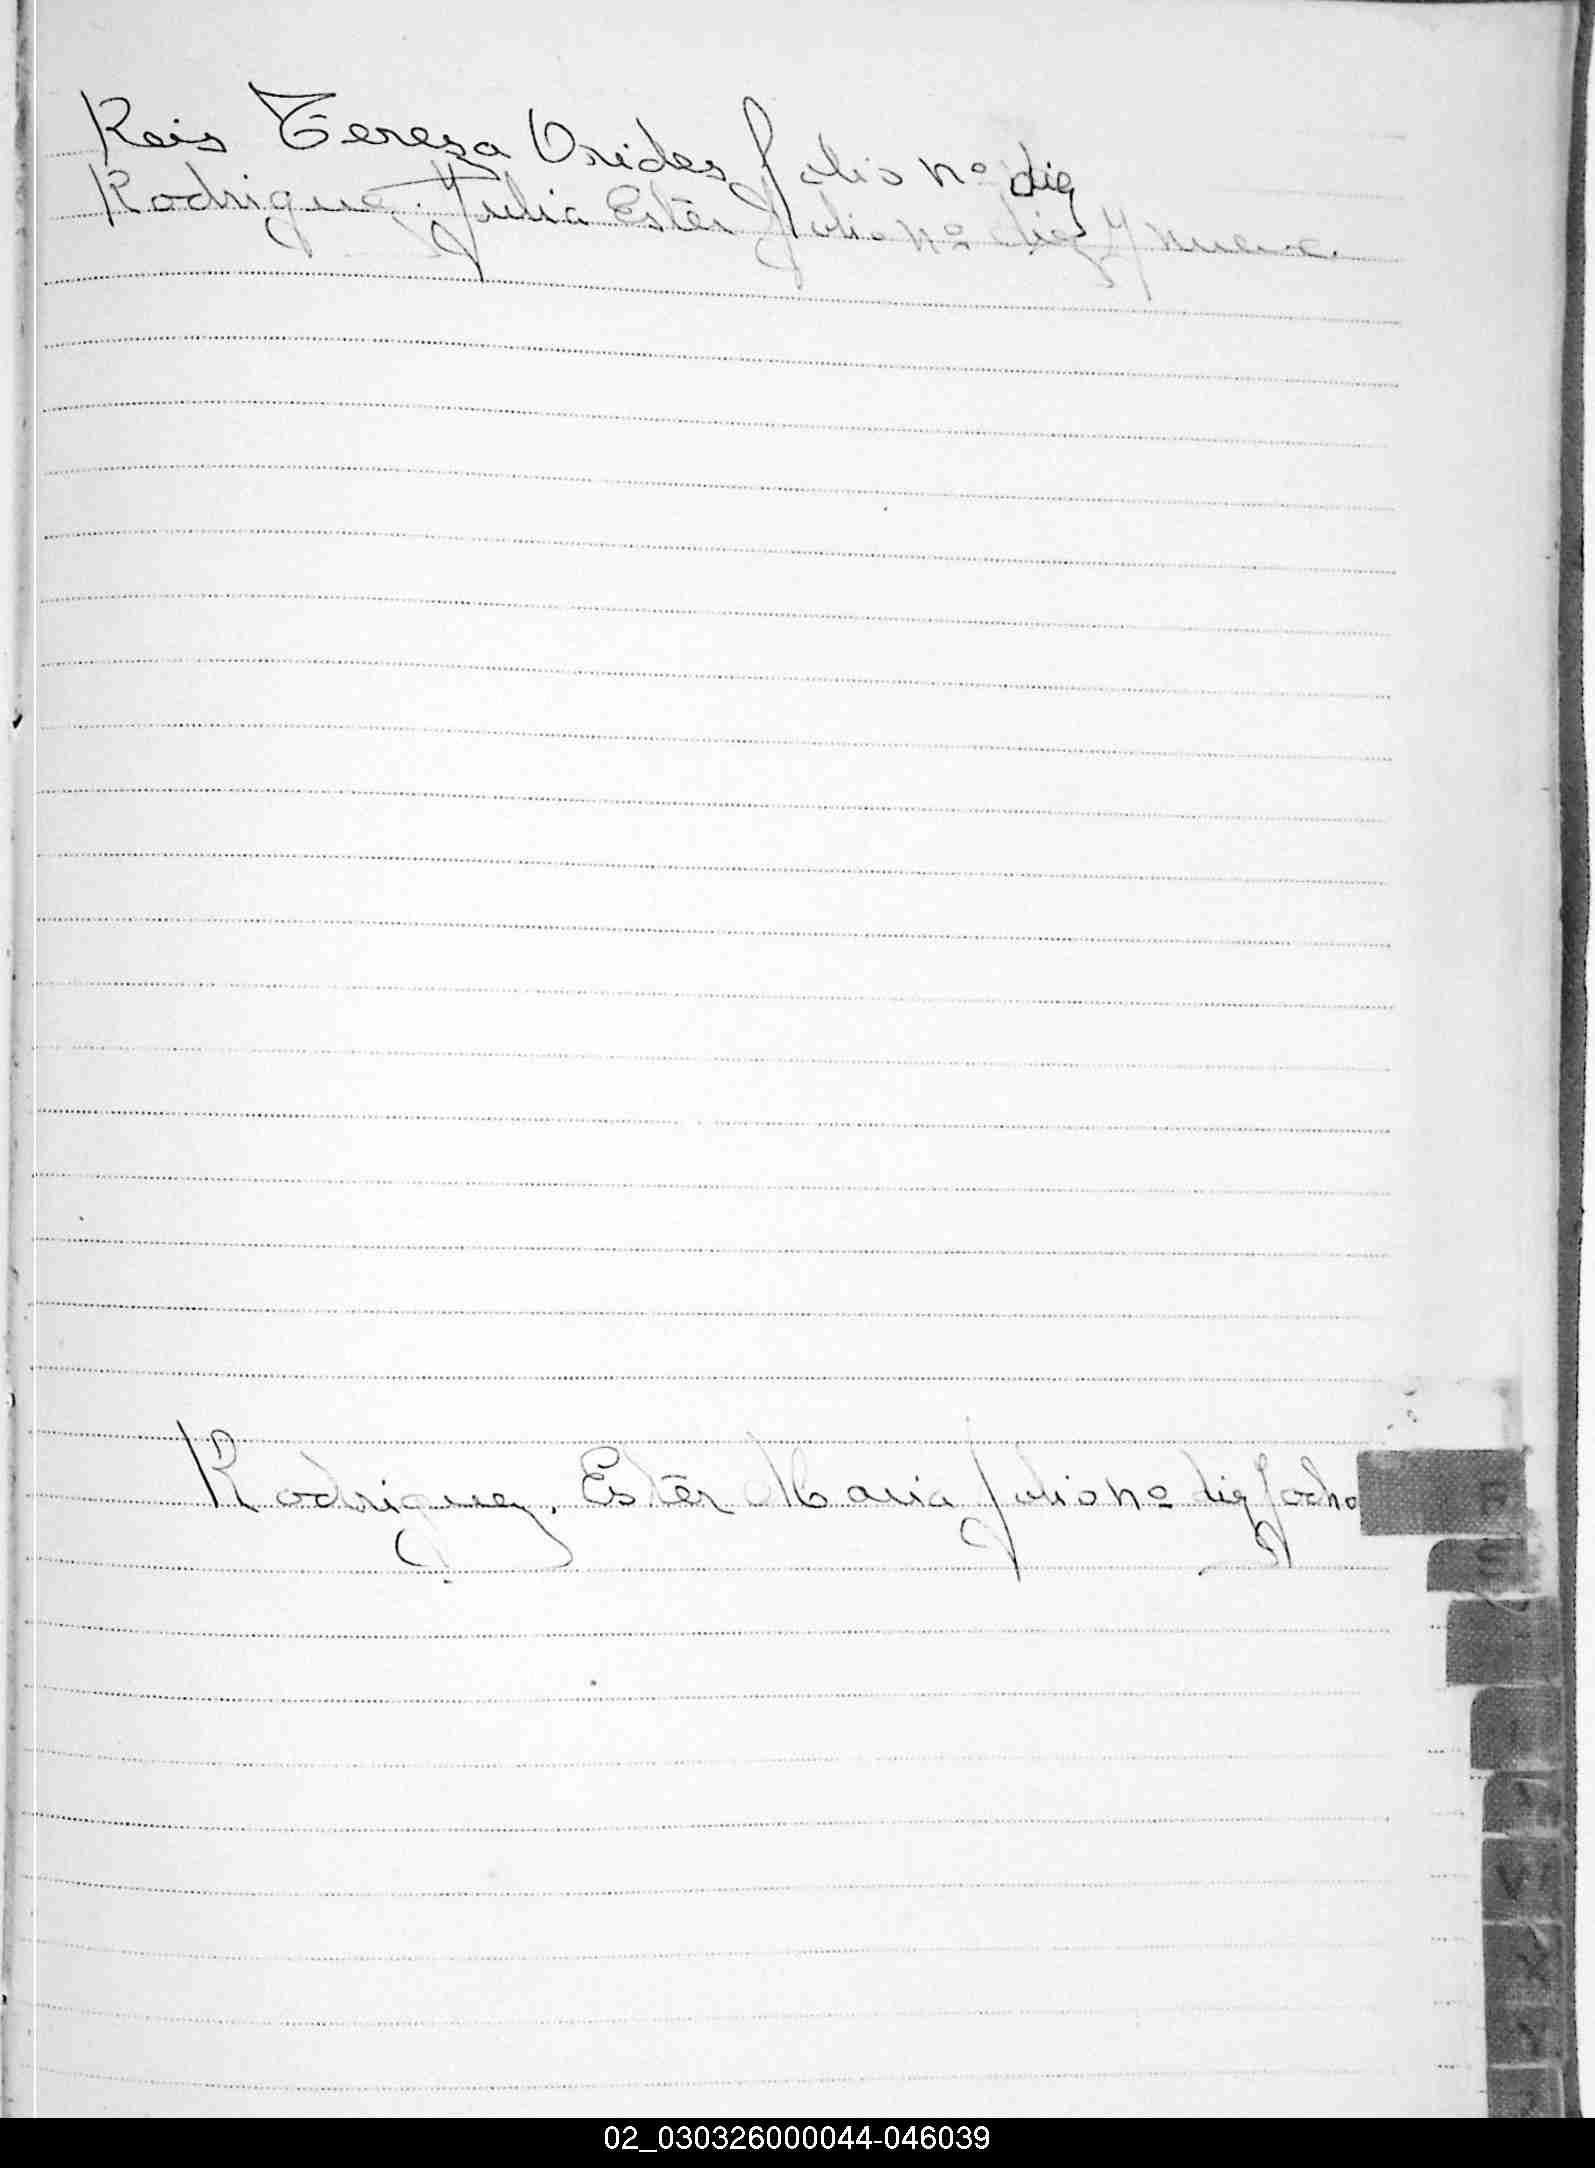 Reis Teresa Orides folio nº diez
Rodriguez Julia Ester folio nº diez y nueve.
Rodriguez, Ester Maria folio nº diez y ocho
R
S
V
X
02_030326000044-046039